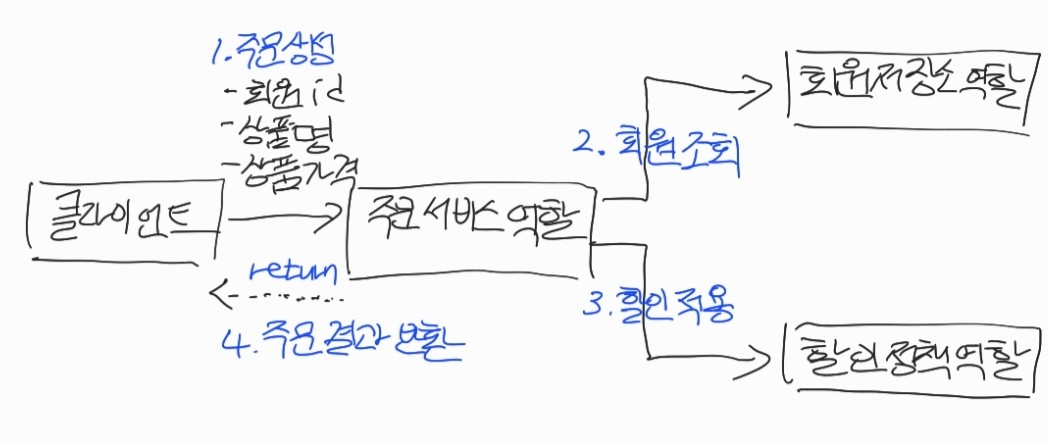 1. 주문생성
- 회원 id
- 상품명
- 상품가격
클라이언트
주문 서비스 역할
return
4. 주문결과 반환
2. 회원조회
회원저장소 역할
3. 할인적용
할인정책역할